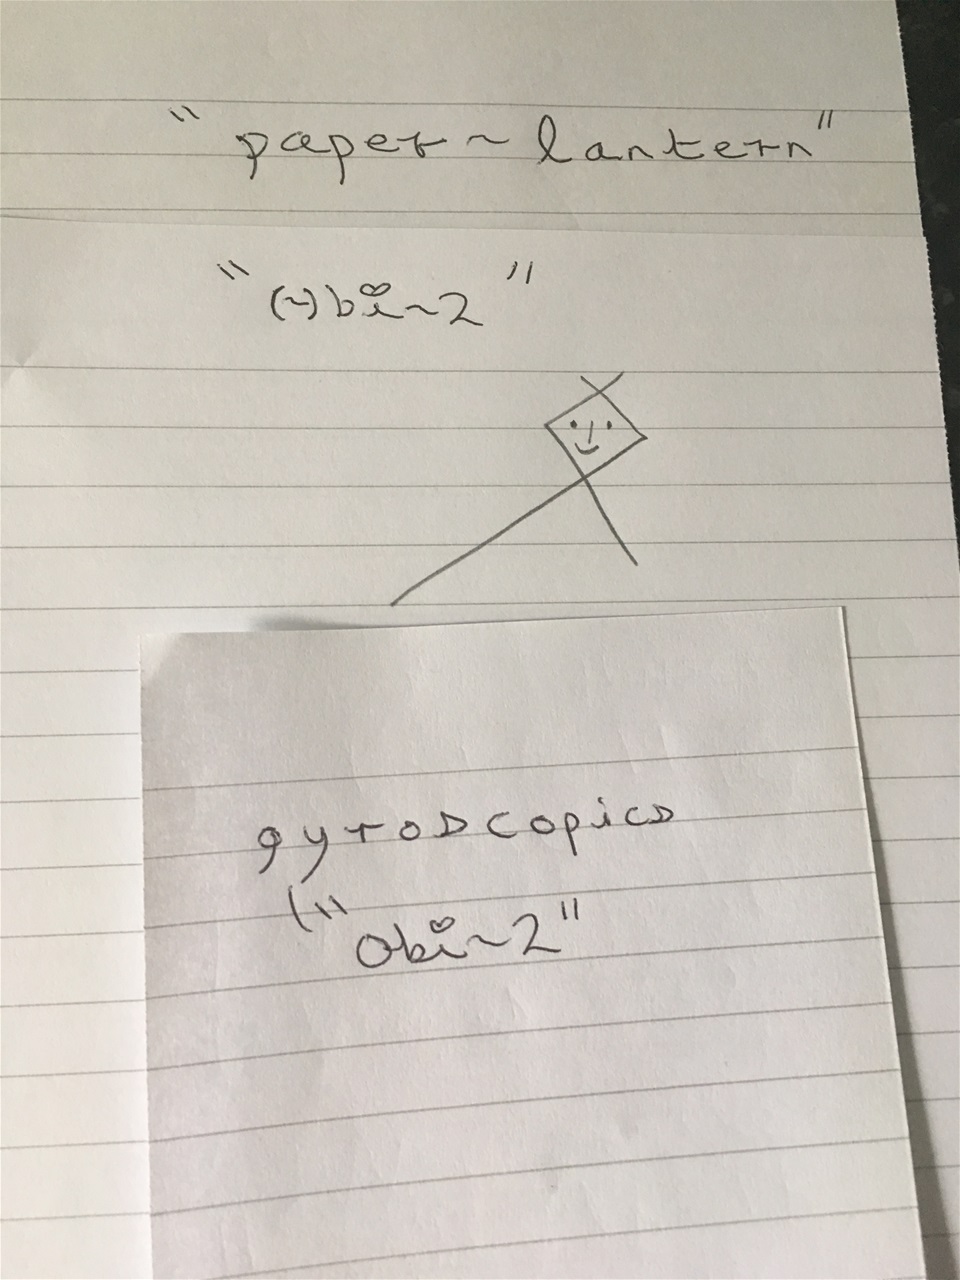 "paper~lantern"
"(~)bi~2"
gyroscopics
("obi~2"